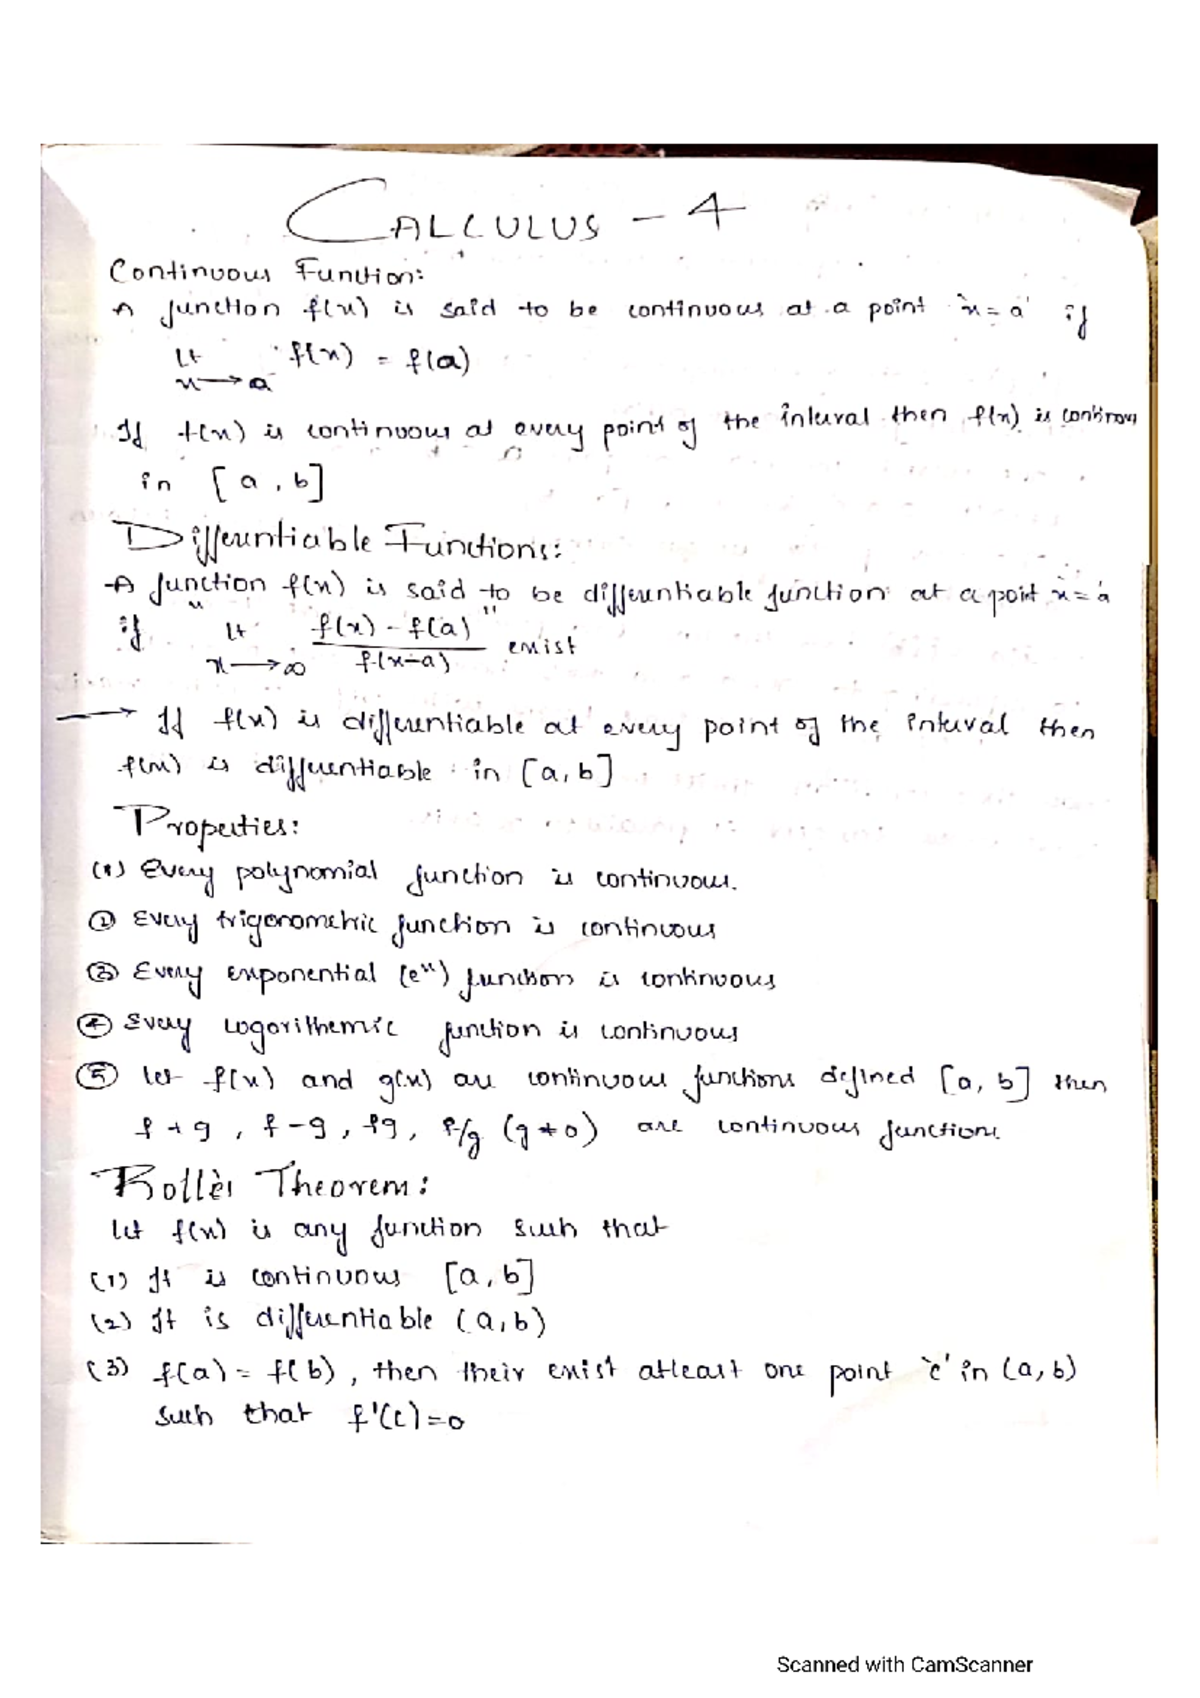 CALCULUS - 4
Continuous Function:
A function f(x) is said to be continuous at a point 'x=a' if
lt f(x) = f(a)
x→a
If f(x) is continuous at every point of the interval then f(x) is continous
in [a, b]
Differentiable Functions:
A function f(x) is said to be differentiable function at a point x='a
if " lt f(x) - f(a) " exist
x→∞ f(x-a)
→ If f(x) is differentiable at every point of the interval then
f(x) is differentiable in [a, b]
Properties:
(1) Every polynomial function is continuous.
② Every trigonometric function is continuous
③ Every exponential (eˣ) function is continuous
④ Every logorithemic function is continuous
⑤ let f(x) and g(x) are continuous functions defined [a, b] then
f + g, f - g, fg, f/g (g ≠ 0) are continuous functions.
Rolle's Theorem:
let f(x) is any function such that
(1) It is continuous [a, b]
(2) It is differentiable (a, b)
(3) f(a) = f(b), then their exist atleast one point 'c' in (a, b)
such that f'(c) = 0
Scanned with CamScanner